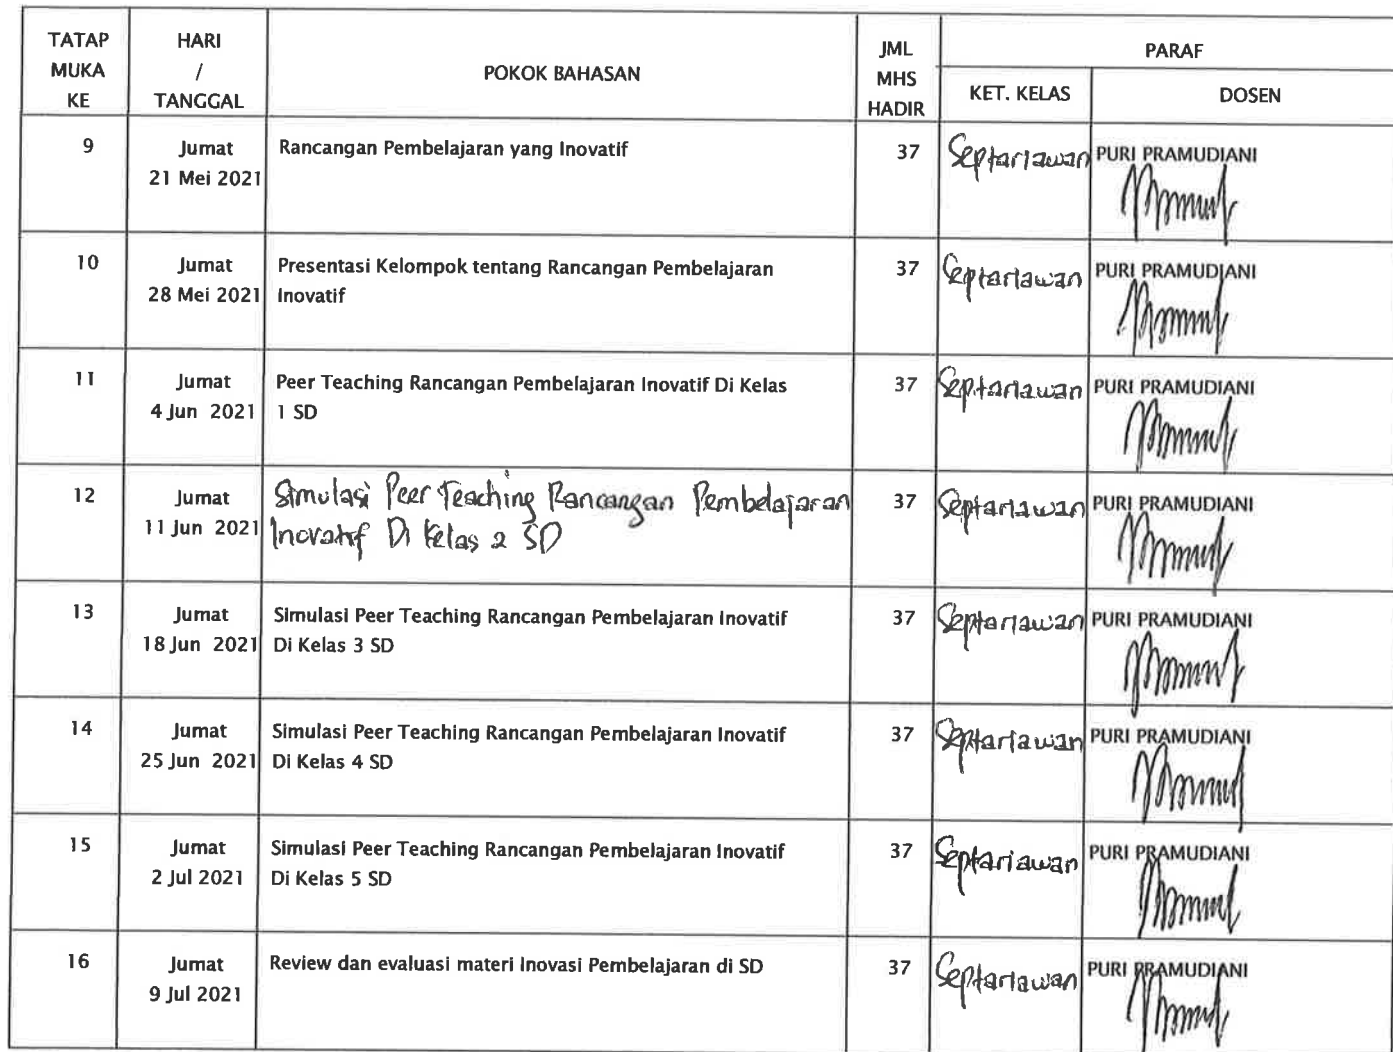 TATAP MUKA KE
HARI / TANGGAL
POKOK BAHASAN
JML MHS HADIR
PARAF
KET. KELAS
DOSEN
9
Jumat
21 Mei 2021
Rancangan Pembelajaran yang Inovatif
37
Septariawan
PURI PRAMUDIANI
10
Jumat
28 Mei 2021
Presentasi Kelompok tentang Rancangan Pembelajaran
Inovatif
37
Septariawan
PURI PRAMUDIANI
11
Jumat
4 Jun 2021
Peer Teaching Rancangan Pembelajaran Inovatif Di Kelas
1 SD
37
Septariawan
PURI PRAMUDIANI
12
Jumat
11 Jun 2021
Simulasi Peer Teaching Rancangan Pembelajaran
Inovatif Di Kelas 2 SD
37
Septariawan
PURI PRAMUDIANI
13
Jumat
18 Jun 2021
Simulasi Peer Teaching Rancangan Pembelajaran Inovatif
Di Kelas 3 SD
37
Septariawan
PURI PRAMUDIANI
14
Jumat
25 Jun 2021
Simulasi Peer Teaching Rancangan Pembelajaran Inovatif
Di Kelas 4 SD
37
Septariawan
PURI PRAMUDIANI
15
Jumat
2 Jul 2021
Simulasi Peer Teaching Rancangan Pembelajaran Inovatif
Di Kelas 5 SD
37
Septariawan
PURI PRAMUDIANI
16
Jumat
9 Jul 2021
Review dan evaluasi materi Inovasi Pembelajaran di SD
37
Septariawan
PURI PRAMUDIANI